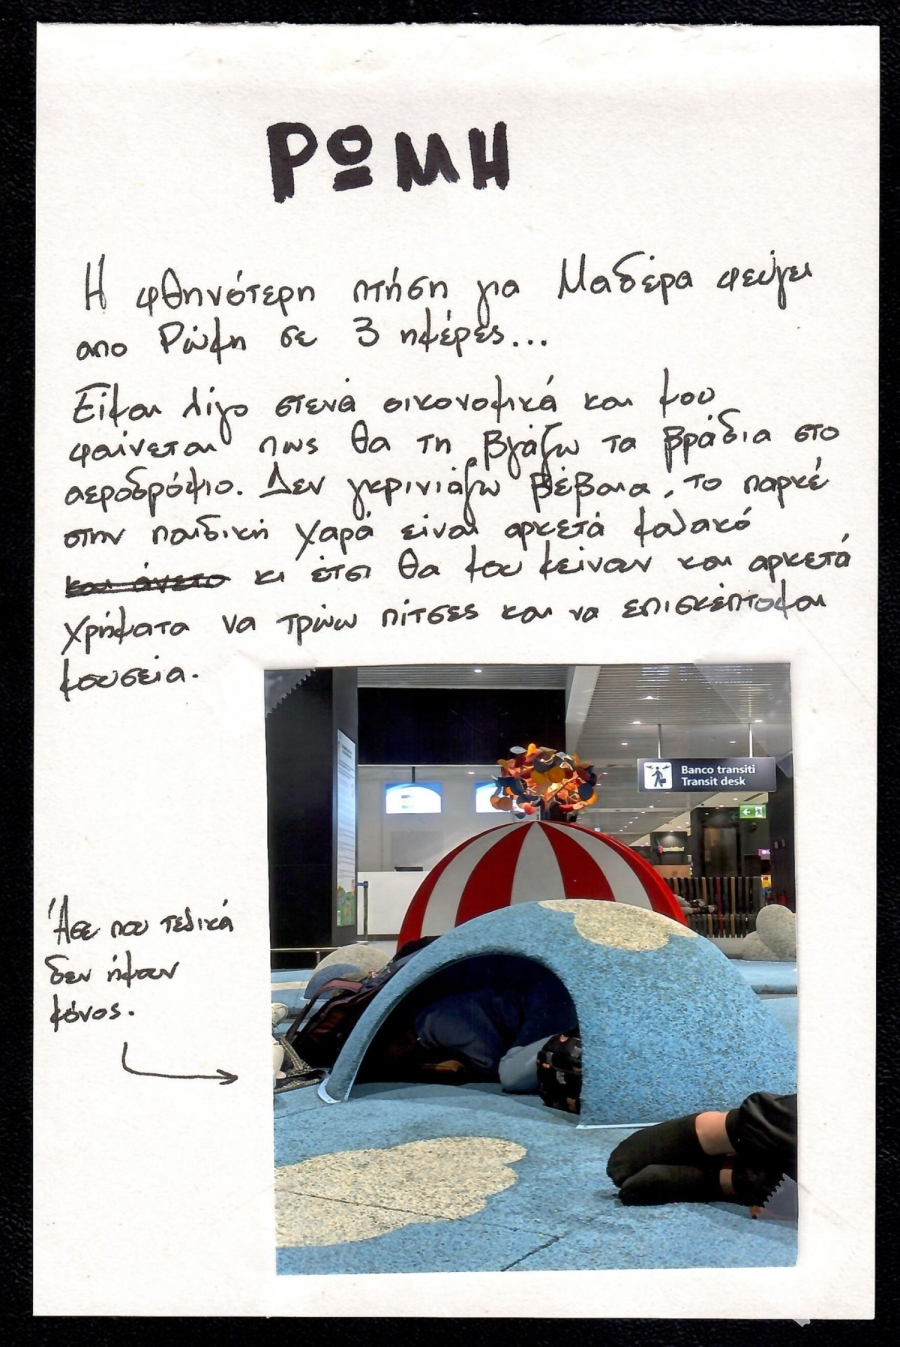 ΡΩΜΗ
Η φθηνότερη πτήση για Μαδέρα φεύγει
απο Ρώμη σε 3 ημέρες...
Είμαι λίγο στενά οικονομικά και μου
φαίνεται πως θα τη βγάζω τα βράδια στο
αεροδρόμιο. Δεν γκρινιάζω βέβαια, το παρκέ
στην παιδική χαρά είναι αρκετά μαλακό
και άνετο κι έτσι θα μου μείναν και αρκετά
χρήματα να τρώω πίτσες και να επισκέπτομαι
μουσεία.
Banco transiti
Transit desk
Άσε που τελικά
δεν ήμουν
μόνος.